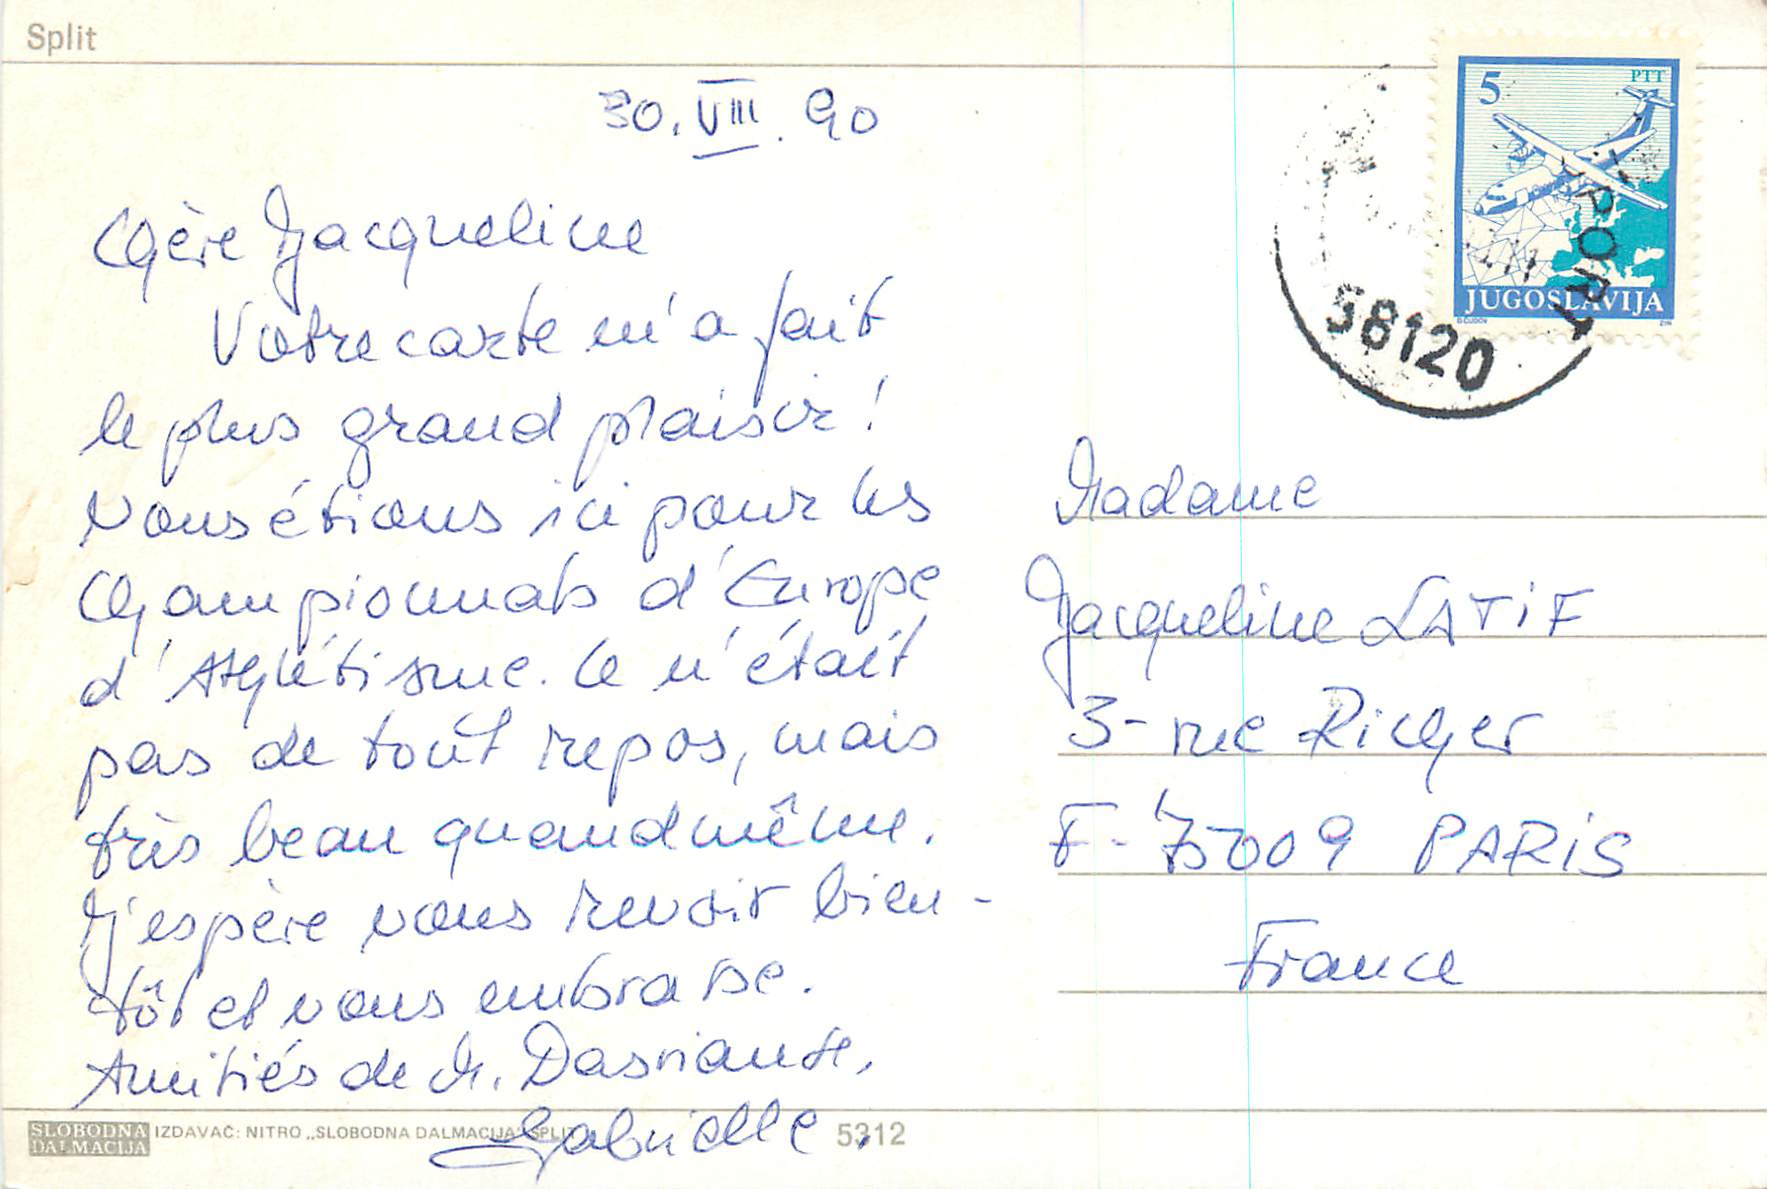 Split
30. VIII. 90
Chère Jacqueline
Votre carte m'a fait
le plus grand plaisir!
Nous étions ici pour les
Championnats d'Europe
d'Athlétisme. Ce n'était
pas de tout repos, mais
très beau quand même.
J'espère vous revoir bien-
tôt et vous embrasse.
Amitiés de M.
Gabrielle.
5 PTT
JUGOSLAVIJA
58120
Madame
Jacqueline LATIF
3- rue Richer
F-75009 PARIS
France
SLOBODNA
DALMACIJA
IZDAVAČ: NITRO „SLOBODNA DALMACIJA" SPLIT
5312